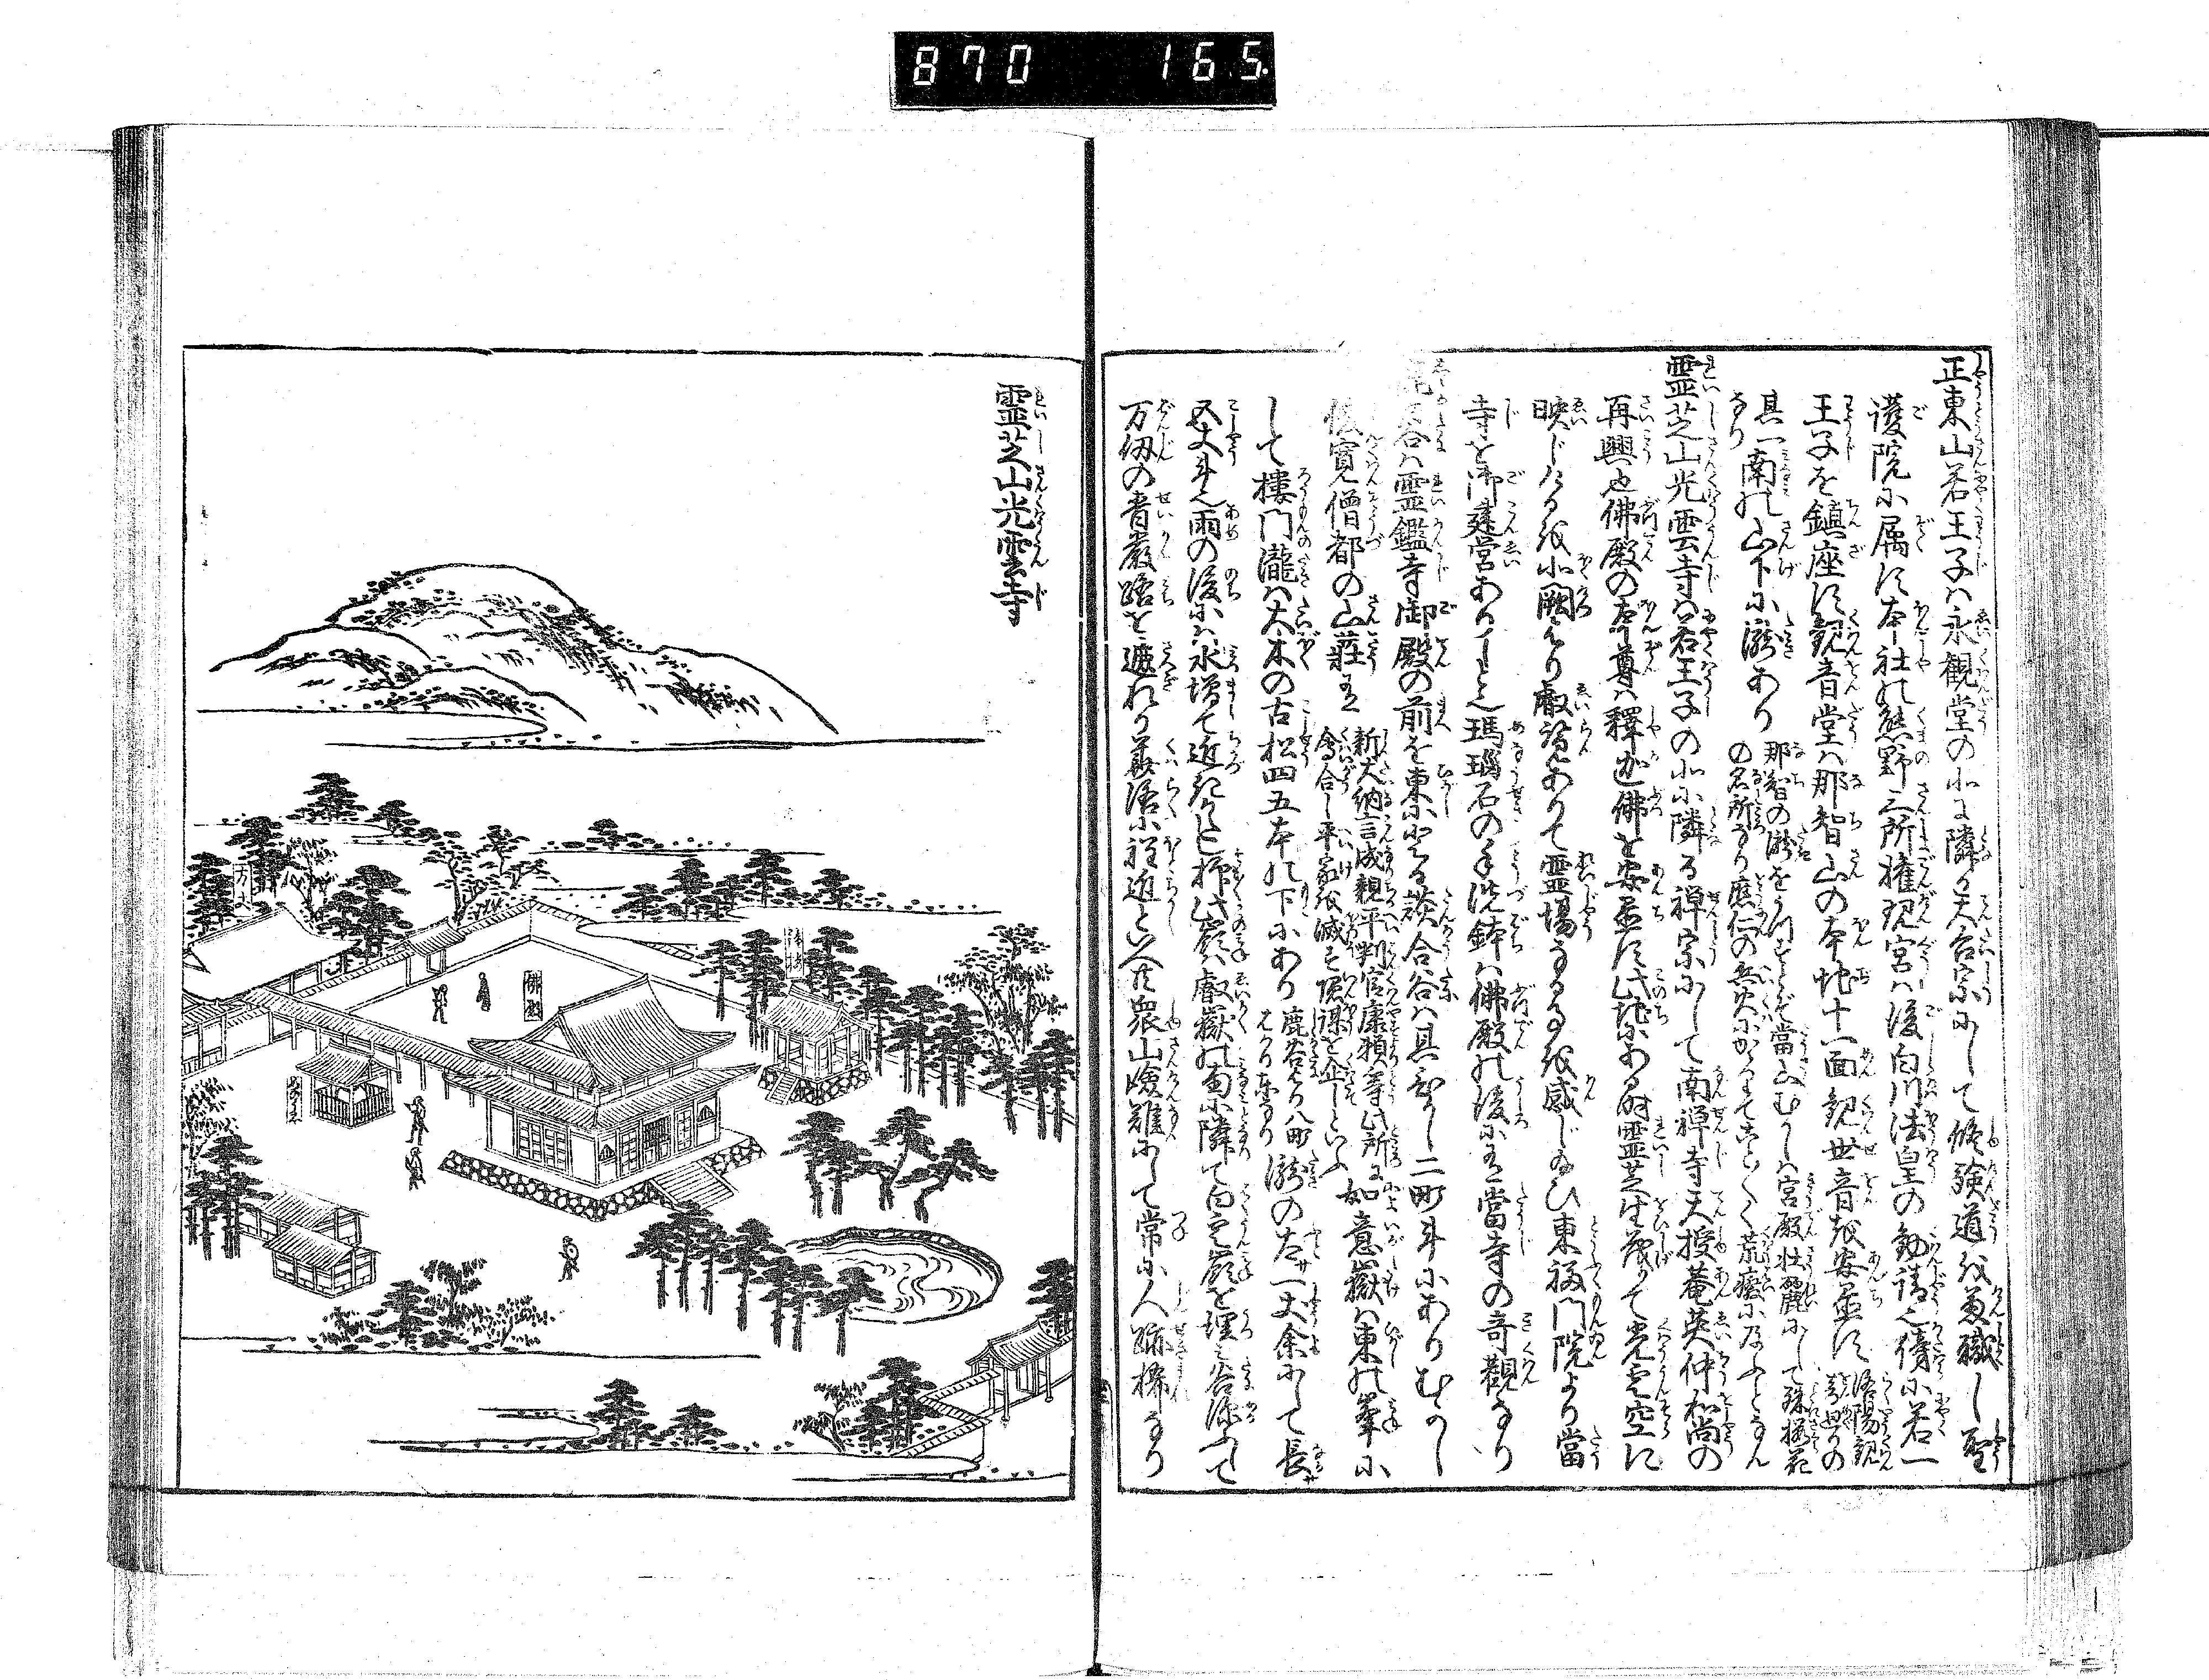 870 165.
正東山若王子ハ永観堂の北に隣る天台宗にして修験道を兼職し聖
護院に属す本社ハ熊野三所権現宮ハ後白川法皇の勧請也傍に若一
王子を鎮座す観音堂ハ那智山の本地十一面観世音を安置す
洛陽観
其南の山下に瀧あり
那智の瀧を
當山むかしハ宮殿壮麗にして殊桜花
の名所なり應仁の兵火にかゝりてこと〴〵く荒廃に及ふとなん
霊芝山光雲寺ハ若王子の北に隣る禅宗にして南禅寺天授菴英仲和尚の
再興也佛殿の本尊ハ釋迦佛を安置す此地にある時霊芝生茂りて光雲空に
映じけるを北闕より叡覧ありて霊場なる事を感じ給ひ東福門院より當
寺を御建営ありしと也瑪瑙石の手洗鉢ハ佛殿の後にあり當寺の奇観なり
谷ハ霊鑑寺御殿の前を東に入る談合谷ハ其東二町斗にありむかし
寛僧都の山荘にて
新大納言成親平判官康頼等此所に
會合し平家を滅す隠謀を企しといふ
如意嶽ハ東の峯に
して樓門瀧ハ大木の古松四五本の下にあり
鹿谷より八町
瀧の左一丈余にして長
五丈斗也雨の後にハ水増て近
此嶺ハ叡嶽の南に隣て白雲嶺を埋ミ谷深ふして
万仭の青巌路を遮れり華洛に程近しといへ共衆山嶮難にして常に人跡稀なり
霊芝山光雲寺
方丈
佛殿